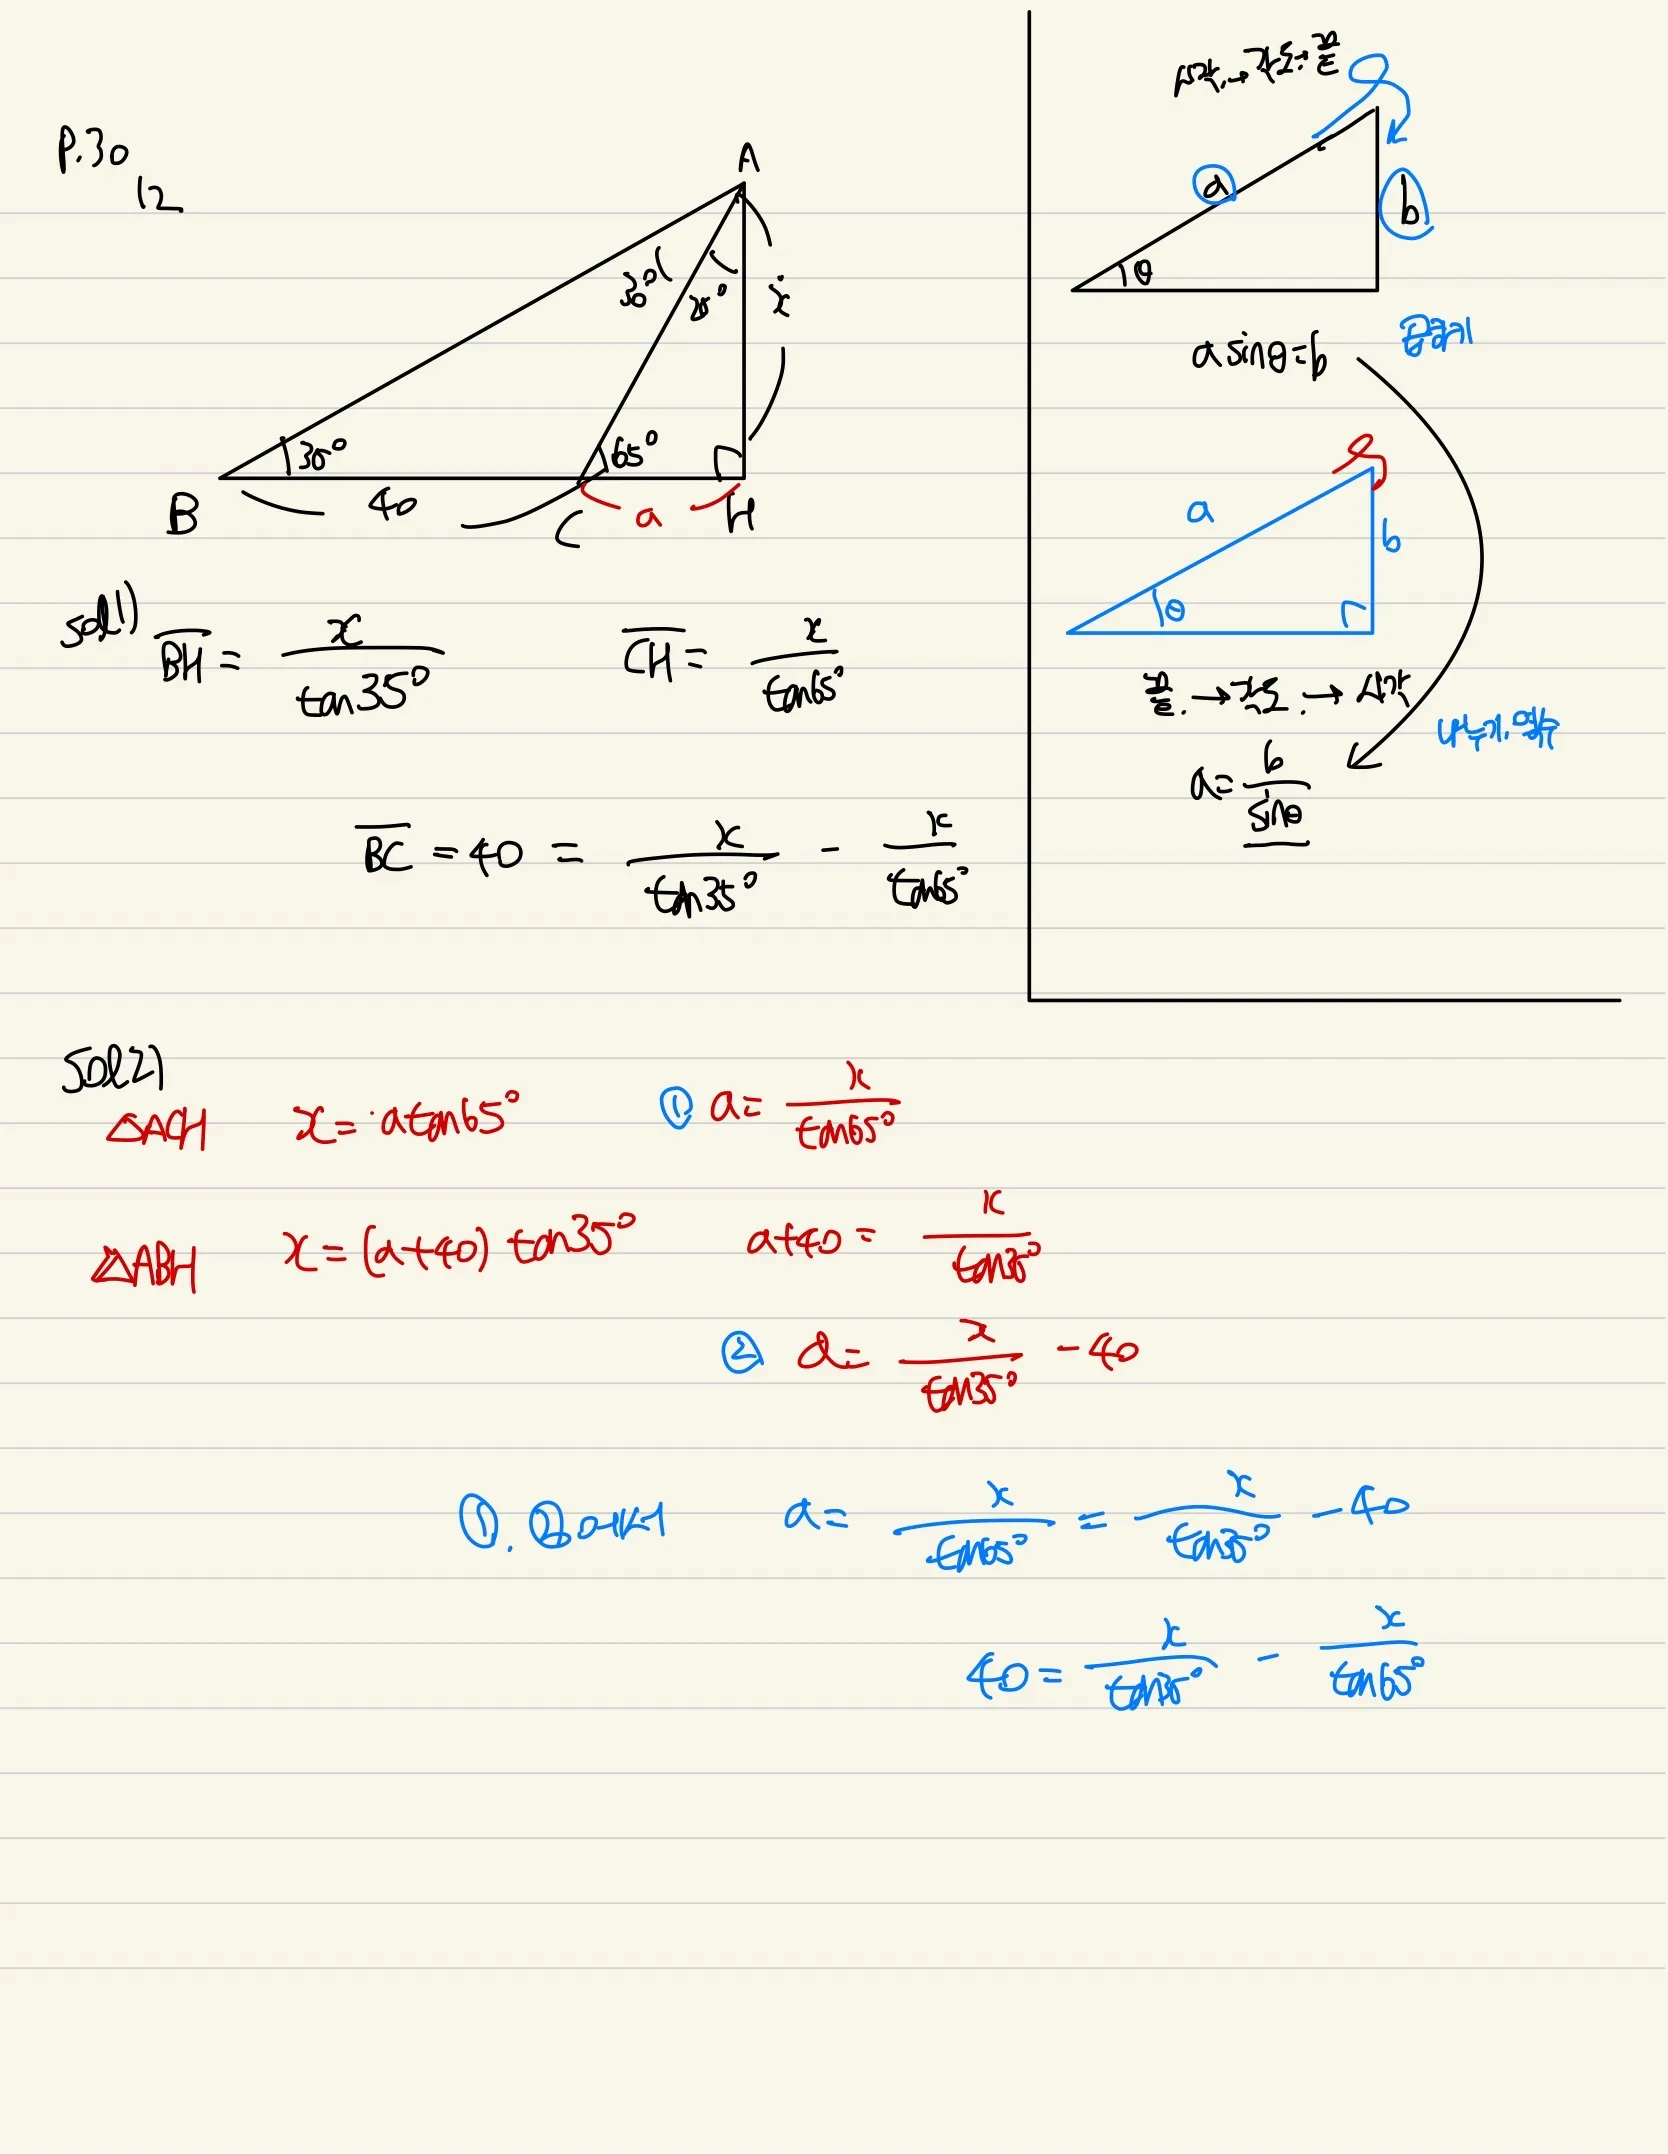 P.30
12
A
30°
25°
x
35°
65°
B
40
C
a
H
sol1)
BH = x / tan35°
CH = x / tan65°
BC = 40 = x / tan35° - x / tan65°
시작.→각도.→끝
a
b
θ
a sinθ = b
곱하기
a
b
θ
끝.→각도.→시작
나누기.역수
a = b / sinθ
sol2)
△ACH x = a tan65° ① a = x / tan65°
△ABH x = (a+40) tan35° a+40 = x / tan35°
② a = x / tan35° - 40
①. ②에서 a = x / tan65° = x / tan35° - 40
40 = x / tan35° - x / tan65°